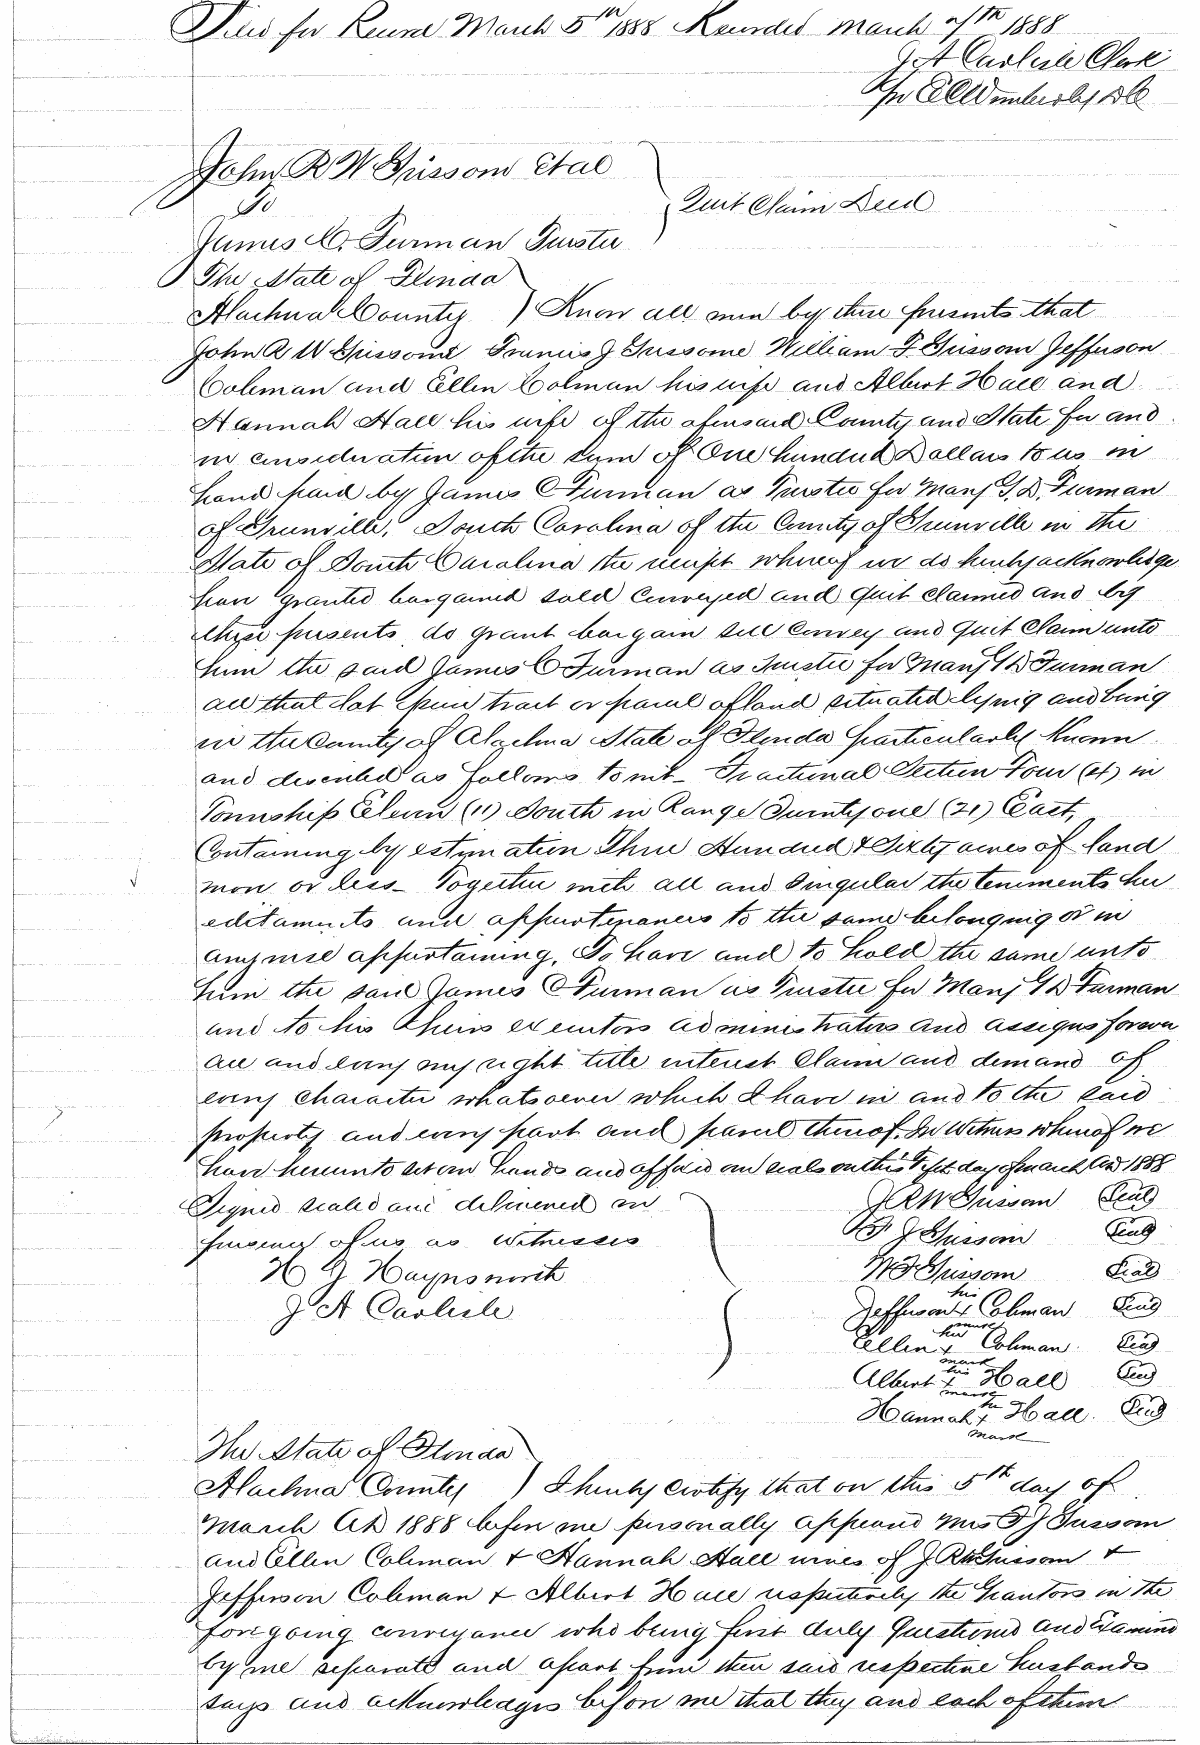 Filed for Record March 5th 1888 Recorded March 7th 1888
J A Carlisle Clerk
Per
John R W Grissom Etal
To
Quit Claim Deed
James C. Furman Trustee
The State of Florida
Alachua County ) Know all men by these presents that
John R W Grissome Francis J Grissome William F Grissom Jefferson
Coleman and Ellen Colman his wife and Albert Hall and
Hannah Hall his wife of the aforesaid County and State for and
in consideration of the sum of One hundred Dollars to us in
hand paid by James C Furman as Trustee for Mary G. D. Furman
of Greenville, South Carolina of the County of Greenville in the
State of South Carolina the receipt whereof we do hereby acknowledge
have granted bargained sold conveyed and quit claimed and by
these presents do grant bargain sell convey and quit claim unto
him the said James C Furman as Trustee for Mary G D Furman
all that lot piece tract or parcel of land situated lying and being
in the County of Alachua State of Florida particularly known
and described as follows towit - Fractional Section Four (4) in
Township Eleven (11) South in Range Twenty one (21) East,
Containing by estimation Three Hundred & Sixty acres of land
more or less - Together with all and Singular the tenements her
editaments and appurtenances to the same belonging or in
anywise appertaining, To have and to hold the same unto
him the said James C Furman as Trustee for Mary G D Furman
and to his heirs executors administrators and assigns forever
all and every my right title interest claim and demand of
every character whatsoever which I have in and to the said
property and every part and parcel thereof. In Witness whereof we
have hereunto set our hands and affixed our seals on this Fifth day of March AD 1888
Signed sealed and delivered in
presence of us as witnesses
H G Haynsworth
J A Carlisle
J R W Grissom Seal
F J Grissom Seal
W F Grissom Seal
his
Jefferson x Colman Seal
mark
her
Ellen x Colman. Seal
mark
his
Albert x Hall Seal
mark
her
Hannah x Hall. Seal
mark
The State of Florida
Alachua County ) I hereby certify that on this 5th day of
March AD 1888 before me personally appeared Mrs F J Grissom
and Ellen Coleman & Hannah Hall wives of J R W Grissom &
Jefferson Coleman & Albert Hall respectively the Grantors in the
foregoing conveyance who being first duly Questioned and Examined
by me separate and apart from their said respective husbands
says and acknowledges before me that they and each of them